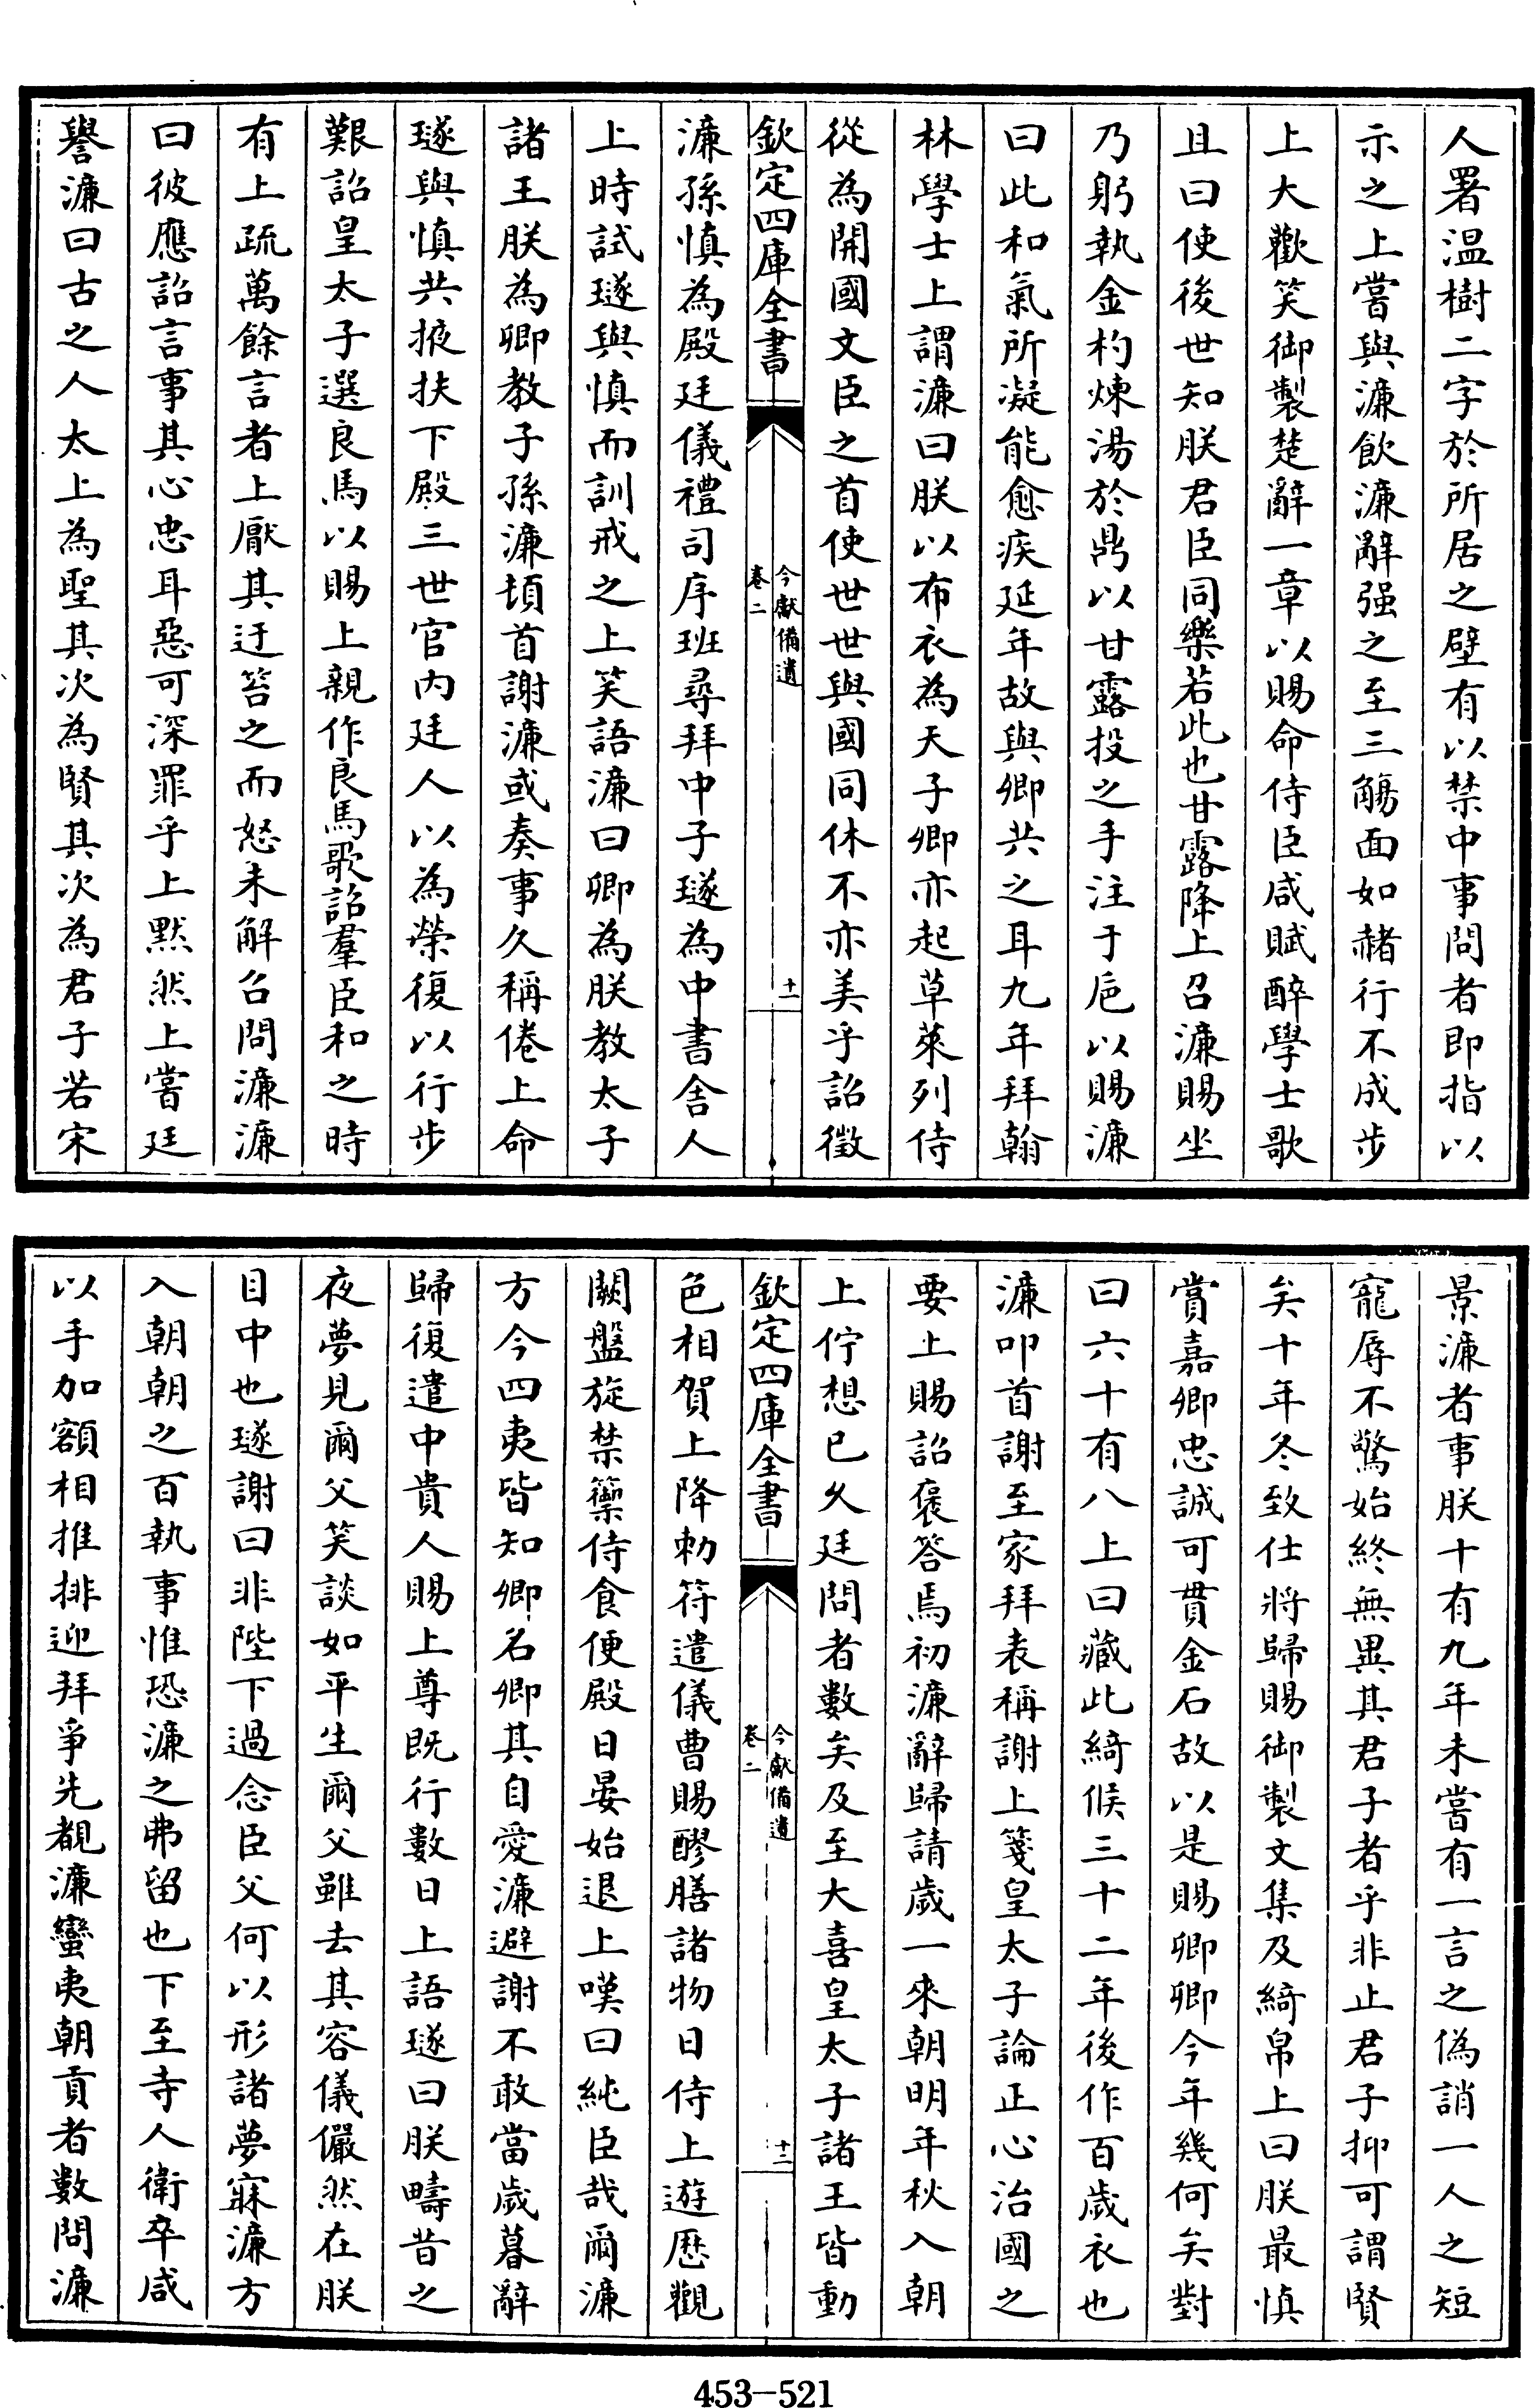 人署温樹二字於所居之壁有以禁中事問者即指以
示之上嘗與濂飲濂辭强之至三觴面如赭行不成步
上大歡笑御製楚辭一章以賜命侍臣咸賦醉學士歌
且曰使後世知朕君臣同樂若此也甘露降上召濂賜坐
乃躬執金杓煉湯於鼎以甘露投之手注于巵以賜濂
曰此和氣所凝能愈疾延年故與卿共之耳九年拜翰
林學士上謂濂曰朕以布衣為天子卿亦起草萊列侍
從為開國文臣之首使世世與國同休不亦美乎詔徵
欽定四庫全書
今獻備遺
卷二
十一
濂孫慎為殿廷儀禮司序班尋拜中子璲為中書舍人
上時試璲與慎而訓戒之上笑語濂曰卿為朕教太子
諸王朕為卿教子孫濂頓首謝濂或奏事久稱倦上命
璲與慎共掖扶下殿三世官内廷人以為榮復以行步
艱詔皇太子選良馬以賜上親作良馬歌詔羣臣和之時
有上疏萬餘言者上厭其迂笞之而怒未解召問濂濂
曰彼應詔言事其心忠耳惡可深罪乎上默然上嘗廷
譽濂曰古之人太上為聖其次為賢其次為君子若宋
景濂者事朕十有九年未嘗有一言之偽誚一人之短
寵辱不驚始終無異其君子者乎非止君子抑可謂賢
矣十年冬致仕將歸賜御製文集及綺帛上曰朕最慎
賞嘉卿忠誠可貫金石故以是賜卿卿今年幾何矣對
曰六十有八上曰藏此綺候三十二年後作百歲衣也
濂叩首謝至家拜表稱謝上箋皇太子論正心治國之
要上賜詔褒答焉初濂辭歸請歲一來朝明年秋入朝
上佇想已久廷問者數矣及至大喜皇太子諸王皆動
欽定四庫全書
今獻備遺
卷二
十二
色相賀上降勅符遣儀曹賜醪膳諸物日侍上遊歷觀
闕盤旋禁籞侍食便殿日晏始退上嘆曰純臣哉爾濂
方今四夷皆知卿名卿其自愛濂避謝不敢當歲暮辭
歸復遣中貴人賜上尊既行數日上語璲曰朕疇昔之
夜夢見爾父笑談如平生爾父雖去其容儀儼然在朕
目中也璲謝曰非陛下過念臣父何以形諸夢寐濂方
入朝朝之百執事惟恐濂之弗留也下至寺人衛卒咸
以手加額相推排迎拜爭先覩濂蠻夷朝貢者數問濂
453-521